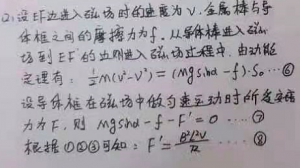 (2)设EF边进入磁场时的速度为V.金属棒与导
体框之间的摩擦力为f.从导体棒进入磁
场到EF的边刚进入磁场过程中.由动能
定理有：½M(V²-V²)=(Mgsinα-f)·S₀…⑥
设导体框在磁场中做匀速运动时所受安培
力为F,则 Mgsinα-f-F'=0 …⑦
根据①②③可知：F'=B²l²V/R …⑧